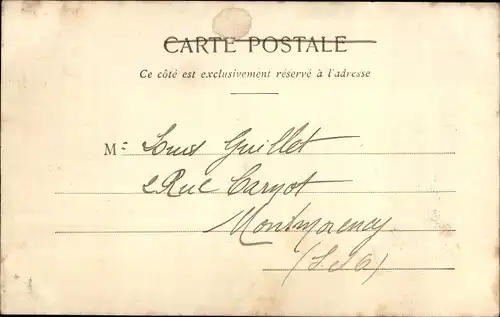 CARTE POSTALE
Ce côté est exclusivement réservé à l'adresse
M: Louis Guillet
2 Rue Carnot
Montmorency
(S & O)